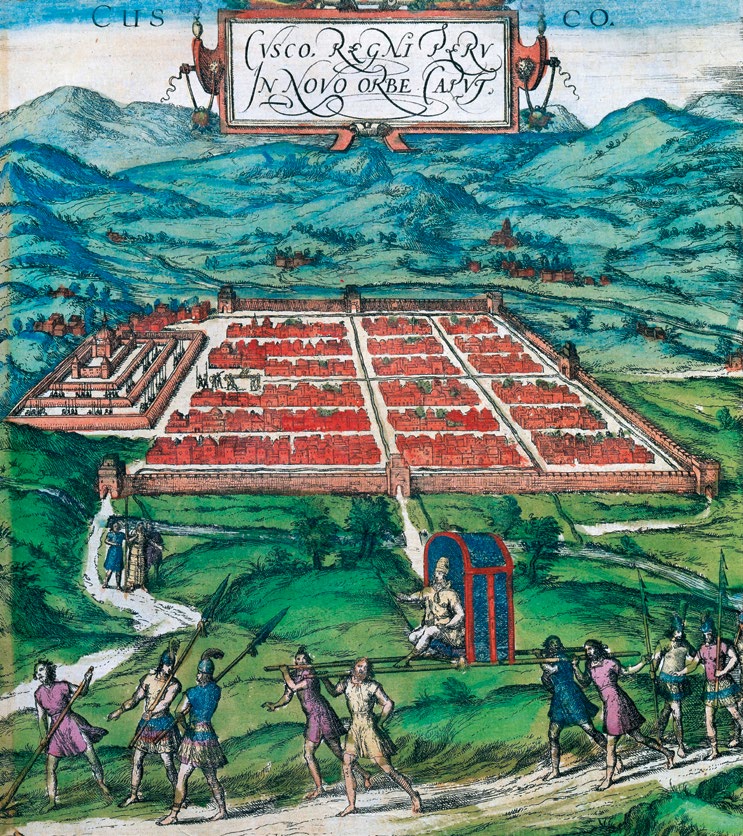 CUS CO.
CVSCO. REGNI PERV
IN NOVO ORBE CAPVT.